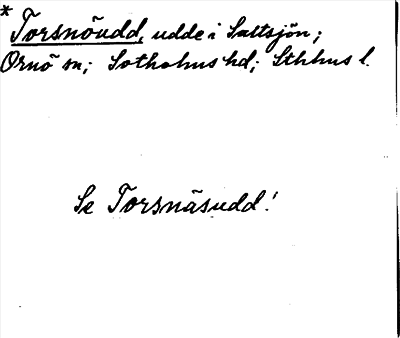 * Torsnöudd, udde i Saltsjön;
Ornö sn; Sotholms hd; Sthlms l.
Se Torsnäsudd!